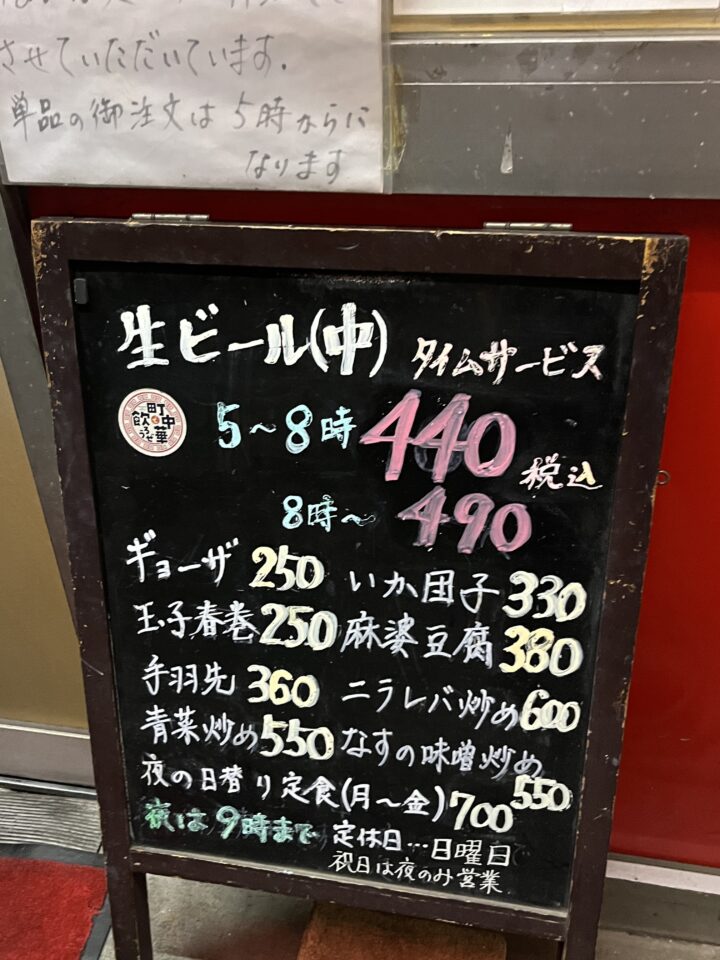 させていただいています.
単品の御注文は5時からに
なります
生ビール(中) タイムサービス
町中華で飲ろうぜ
5〜8時 440 税込
8時〜 490
ギョーザ 250 いか団子 330
玉子春巻 250 麻婆豆腐 380
手羽先 360 ニラレバ炒め 600
青菜炒め 550 なすの味噌炒め
550
夜の日替り定食(月〜金) 700
夜は9時まで 定休日…日曜日
祝日は夜のみ営業